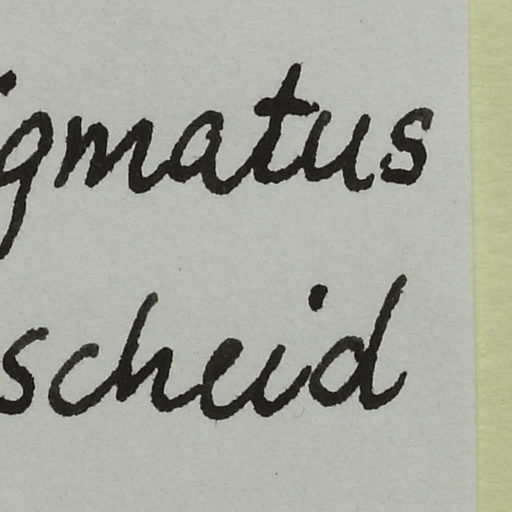 igmatus
scheid